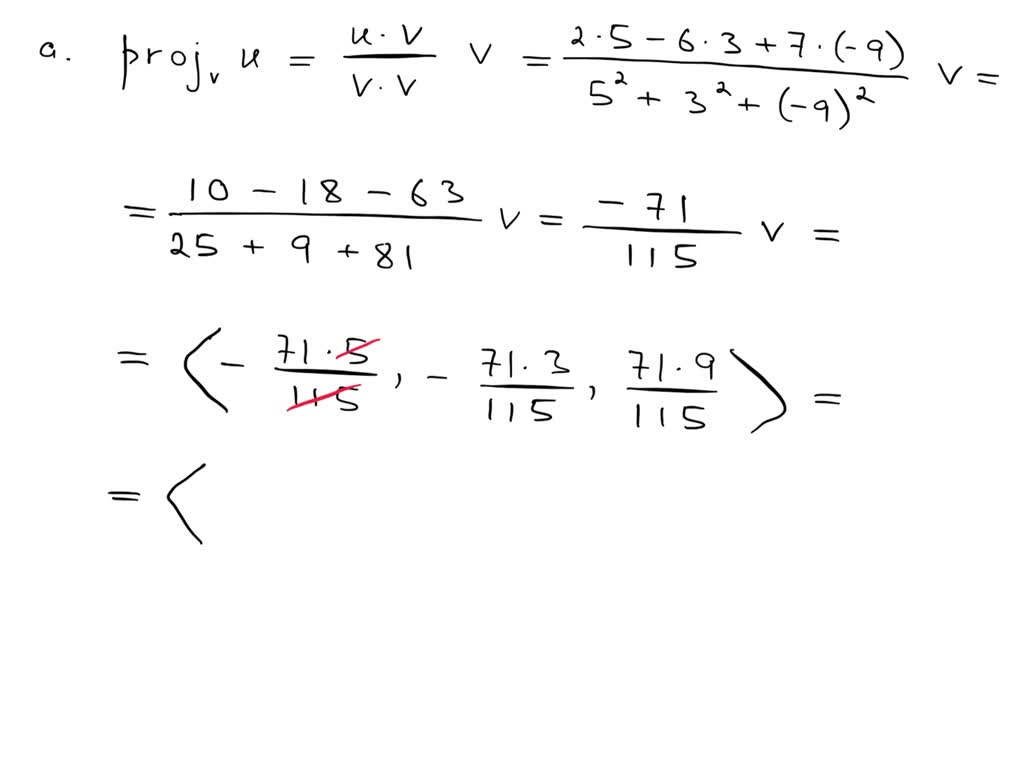 a. proj_v u = u·v / v·v v = 2·5 − 6·3 + 7·(−9) / 5² + 3² + (−9)² v =
= 10 − 18 − 63 / 25 + 9 + 81 v = −71 / 115 v =
= ⟨ − 71·5 / 115 , − 71·3 / 115 , 71·9 / 115 ⟩ =
= ⟨